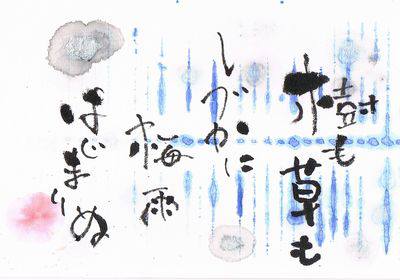 樹も草も
しづかに
梅雨
はじまりぬ